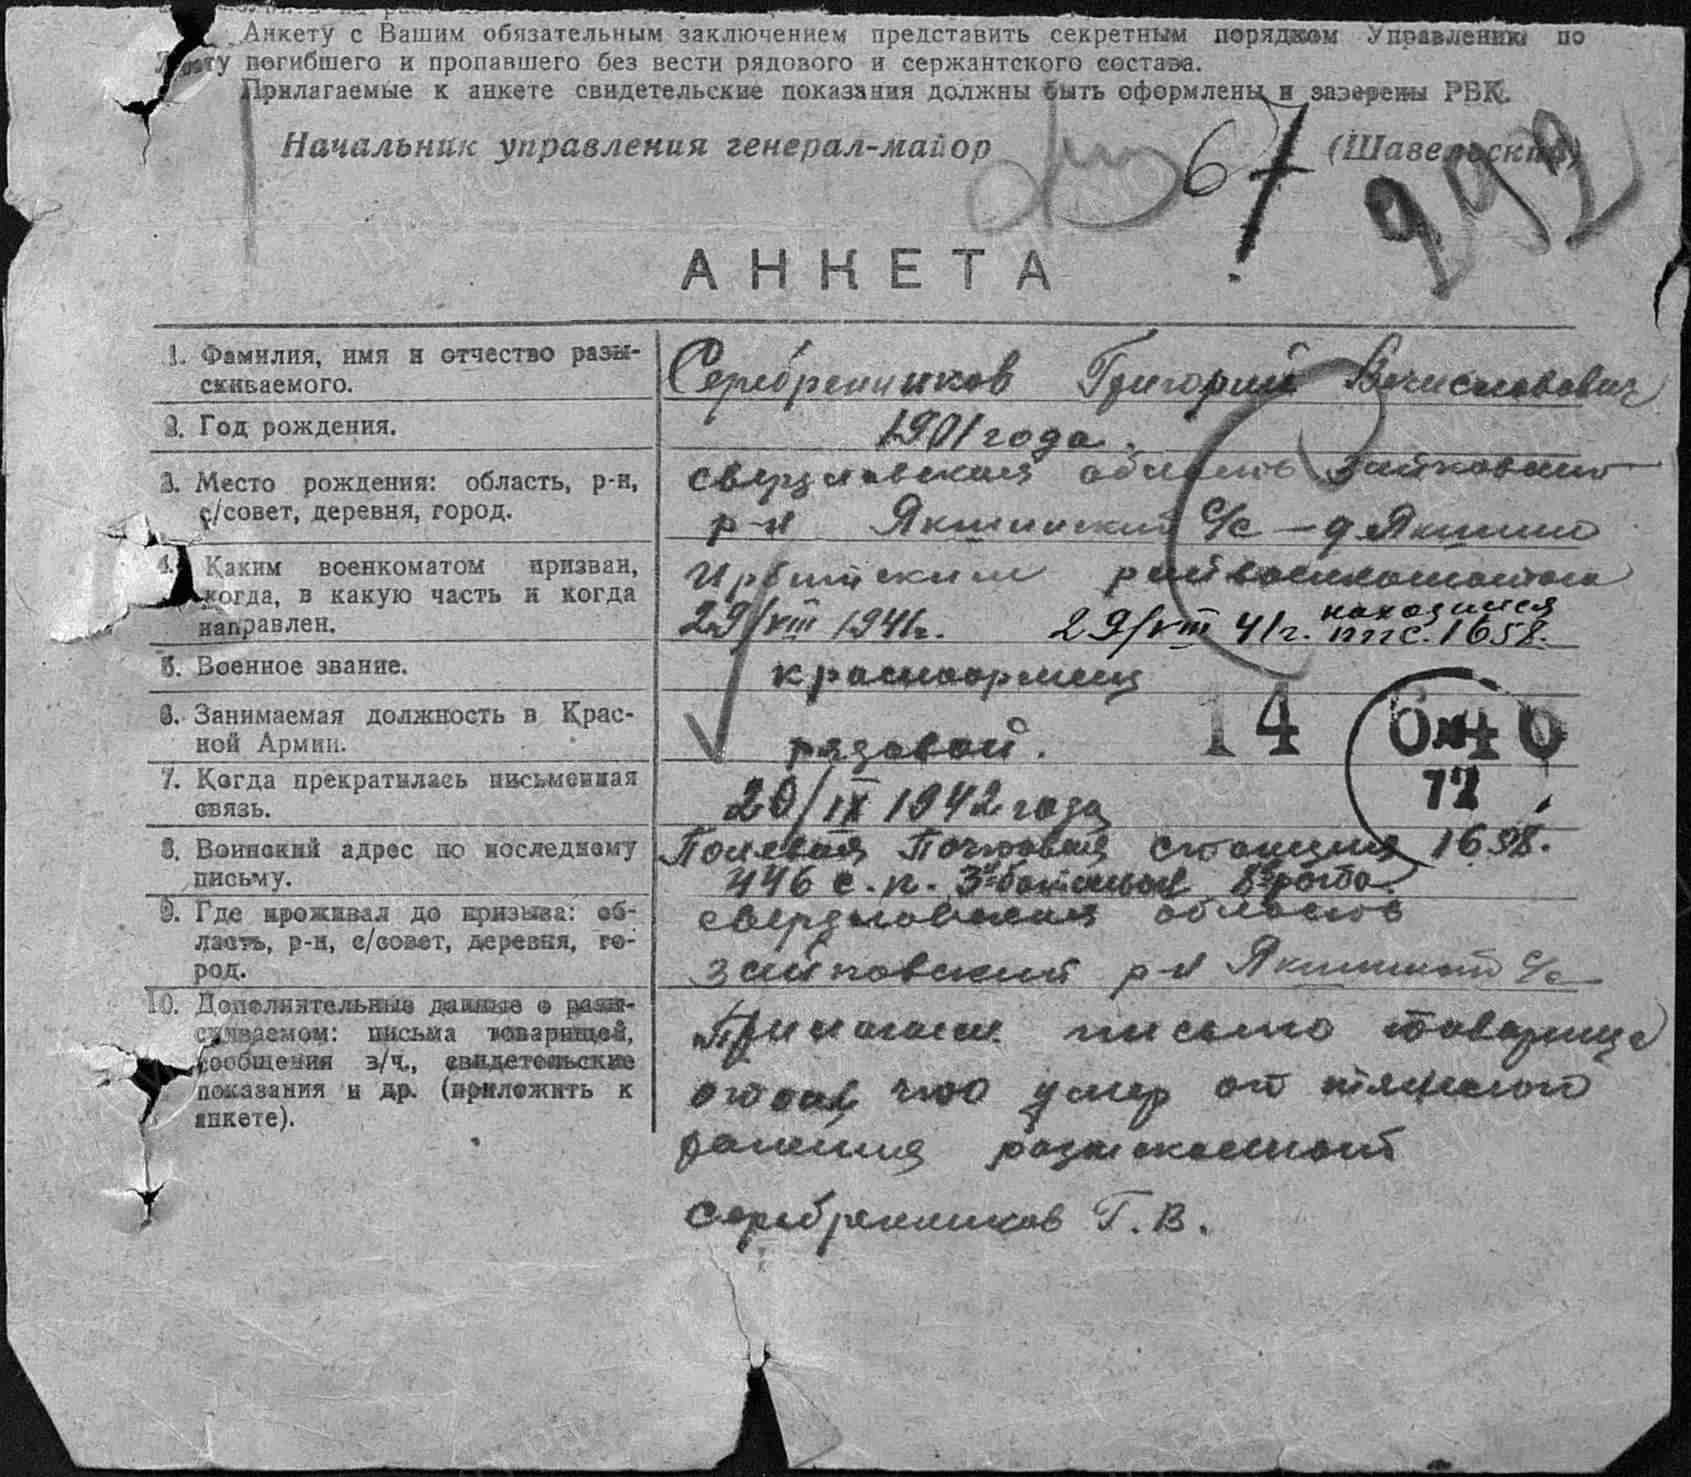 Анкету с Вашим обязательным заключением представить секретным порядком Управлению по
учету погибшего и пропавшего без вести рядового и сержантского состава.
Прилагаемые к анкете свидетельские показания должны быть оформлены и заверены РВК.
Начальник управления генерал-майор (Шавельский)
67
292
АНКЕТА
1. Фамилия, имя и отчество разы-
скиваемого.
Серебренников Григорий Вячиславович
2. Год рождения.
1901 года.
3. Место рождения: область, р-н,
с/совет, деревня, город.
свердловская область Зайковский
р-н Якшинский с/с — д Якшино
4. Каким военкоматом призван,
когда, в какую часть и когда
направлен.
Ирбитским райвоенкоматом
29/VIII 1941г. 29/VIII 41г. находился
ппс. 1658.
5. Военное звание.
красноармеец
6. Занимаемая должность в Крас-
ной Армии.
рядовой.
14 640
77
7. Когда прекратилась письменная
связь.
20/IX 1942 года
8. Воинский адрес по последнему
письму.
Полевая Почтовая станция 1698.
446 с.п. 3й батальон 8я рота.
9. Где проживал до призыва: об-
ласть, р-н, с/совет, деревня, го-
род.
свердловская область
зайковский р-н Якшинский с/с
10. Дополнительные данные о разы-
скиваемом: письма товарищей,
сообщения з/ч., свидетельские
показания и др. (приложить к
анкете).
Прилагаем письмо товарища
что умер от тяжелого
ранения
Серебренников Г. В.